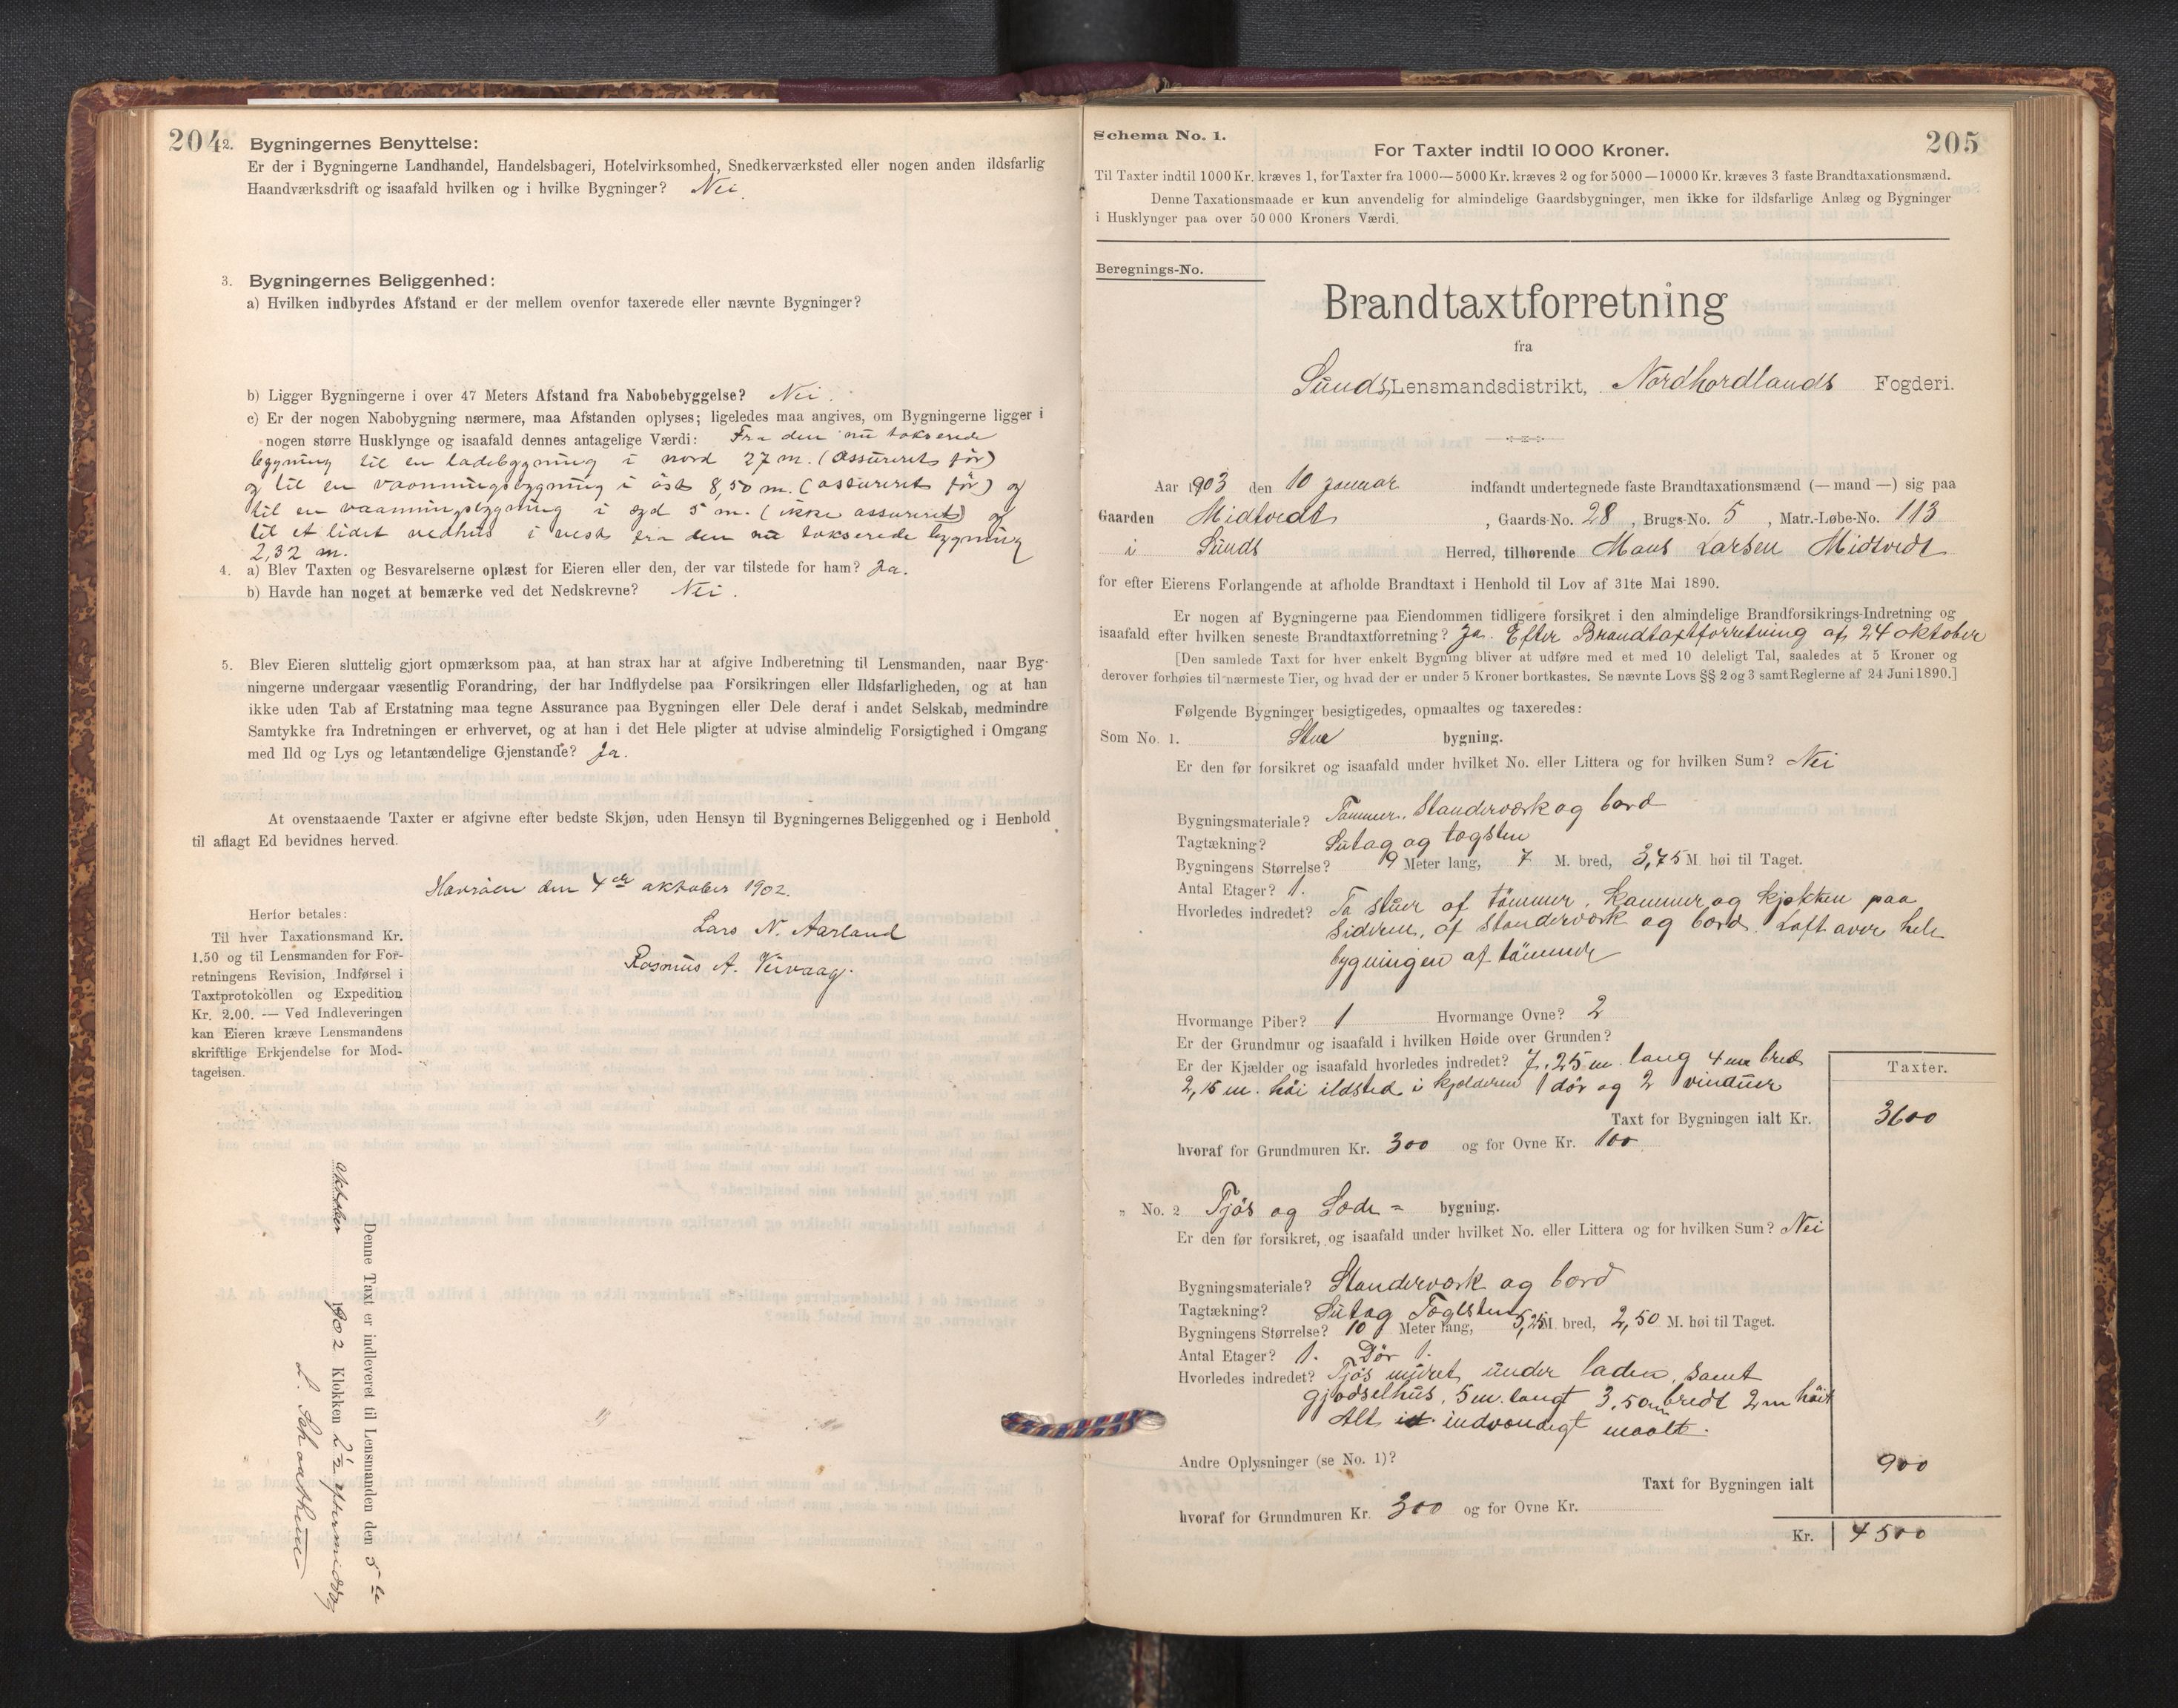 204
2. Bygningernes Benyttelse:
Er der i Bygningerne Landhandel, Handelsbageri, Hotelvirksomhed, Snedkerværksted eller nogen anden ildsfarlig
Haandværksdrift og isaafald hvilken og i hvilke Bygninger? Nei.
3. Bygningernes Beliggenhed:
a) Hvilken indbyrdes Afstand er der mellem ovenfor taxerede eller nævnte Bygninger?
b) Ligger Bygningerne i over 47 Meters Afstand fra Nabobebyggelse? Nei.
c) Er der nogen Nabobygning nærmere, maa Afstanden oplyses; ligeledes maa angives, om Bygningerne ligger i
nogen større Husklynge og isaafald dennes antagelige Værdi: Fra den nu takserede
bygning til en ladebygning i nord 27 m. (assureret før)
og til en vaaningsbygning i øst 8,50 m. (assureret før) og
til en vaaningsbygning i syd 5 m. (ikke assureret) og
til et lidet vedhus i vest fra den nu takserede bygning
2,32 m.
4. a) Blev Taxten og Besvarelserne oplæst for Eieren eller den, der var tilstede for ham? Ja.
b) Havde han noget at bemærke ved det Nedskrevne? Nei.
5. Blev Eieren sluttelig gjort opmærksom paa, at han strax har at afgive Indberetning til Lensmanden, naar Byg-
ningerne undergaar væsentlig Forandring, der har Indflydelse paa Forsikringen eller Ildsfarligheden, og at han
ikke uden Tab af Erstatning maa tegne Assurance paa Bygningen eller Dele deraf i andet Selskab, medmindre
Samtykke fra Indretningen er erhvervet, og at han i det Hele pligter at udvise almindelig Forsigtighed i Omgang
med Ild og Lys og letantændelige Gjenstande? Ja.
At ovenstaaende Taxter er afgivne efter bedste Skjøn, uden Hensyn til Bygningernes Beliggenhed og i Henhold
til aflagt Ed bevidnes herved.
den 4de oktober 1902.
Lars N. Aarland
Rasmus A. Veivaag.
Herfor betales:
Til hver Taxationsmand Kr.
1.50 og til Lensmanden for For-
retningens Revision, Indførsel i
Taxtprotokollen og Expedition
Kr. 2.00. — Ved Indleveringen
kan Eieren kræve Lensmandens
skriftlige Erkjendelse for Mod-
tagelsen.
Denne Taxt er indleveret til Lensmanden den 5te
oktober 1902 Klokken 2 1/2 eftermiddag
205
Schema No. 1.
For Taxter indtil 10 000 Kroner.
Til Taxter indtil 1000 Kr. kræves 1, for Taxter fra 1000—5000 Kr. kræves 2 og for 5000—10000 Kr. kræves 3 faste Brandtaxationsmænd.
Denne Taxationsmaade er kun anvendelig for almindelige Gaardsbygninger, men ikke for ildsfarlige Anlæg og Bygninger
i Husklynger paa over 50 000 Kroners Værdi.
Beregnings-No.
Brandtaxtforretning
fra
Sunds Lensmandsdistrikt, Nordhordlands Fogderi.
Aar 1903 den 10 Januar indfandt undertegnede faste Brandtaxationsmænd (— mand —) sig paa
Gaarden Midtvedt, Gaards-No. 28, Brugs-No. 5, Matr.-Løbe-No. 113
i Sunds Herred, tilhørende Mons Larsen Midtvedt
for efter Eierens Forlangende at afholde Brandtaxt i Henhold til Lov af 31te Mai 1890.
Er nogen af Bygningerne paa Eiendommen tidligere forsikret i den almindelige Brandforsikrings-Indretning og
isaafald efter hvilken seneste Brandtaxtforretning? Ja. Efter Brandtaxtforretning af 24 oktober
[Den samlede Taxt for hver enkelt Bygning bliver at udføre med et med 10 deleligt Tal, saaledes at 5 Kroner og
derover forhøies til nærmeste Tier, og hvad der er under 5 Kroner bortkastes. Se nævnte Lovs §§ 2 og 3 samt Reglerne af 24 Juni 1890.]
Følgende Bygninger besigtigedes, opmaaltes og taxeredes:
Som No. 1. Stue bygning.
Er den før forsikret og isaafald under hvilket No. eller Littera og for hvilken Sum? Nei
Bygningsmateriale? Tømmer, Standerværk og bord
Tagtækning? Sutag og tagsten
Bygningens Størrelse? 9 Meter lang, 7 M. bred, 3,75 M. høi til Taget.
Antal Etager? 1.
Hvorledes indredet? To stuer af tømmer, kammer og kjøkken paa
Siderne, af Standerværk og bord. Loft over hele
bygningen af tømmer
Hvormange Piber? 1 Hvormange Ovne? 2
Er der Grundmur og isaafald i hvilken Høide over Grunden?
Er der Kjælder og isaafald hvorledes indredet? 7,25 m. lang 4 m bred
2,15 m. høi ildsted i kjelderen 1 dør og 2 vinduer
Taxter.
Taxt for Bygningen ialt Kr. 3600
hvoraf for Grundmuren Kr. 300 og for Ovne Kr. 100
„ No. 2 Fjøs og Lade = bygning.
Er den før forsikret, og isaafald under hvilket No. eller Littera og for hvilken Sum? Nei
Bygningsmateriale? Standerværk og bord
Tagtækning? Sutag Taglsten
Bygningens Størrelse? 10 Meter lang, 5,25 M. bred, 2,50 M. høi til Taget.
Antal Etager? 1. Dør 1.
Hvorledes indredet? Fjøs muret under laden, samt
gjødselhus, 5 m. langt 3,50 m bredt 2 m høit
Alt indvendigt maalt.
Andre Oplysninger (se No. 1)?
Taxt for Bygningen ialt 900
hvoraf for Grundmuren Kr. 300 og for Ovne Kr.
Kr. 4500